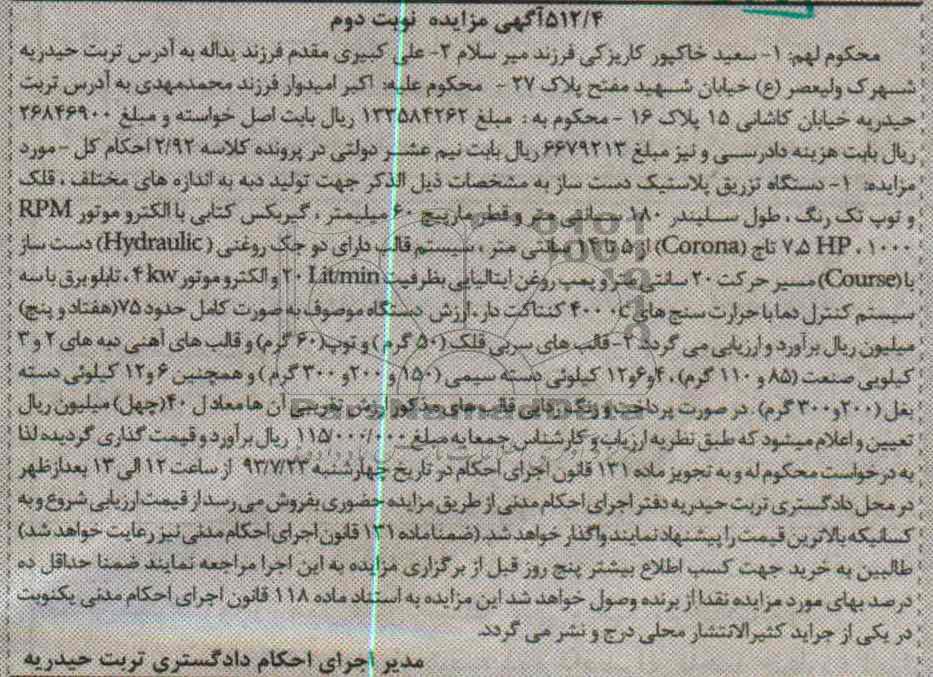 ۵۱۲/۴آگهی مزایده نوبت دوم
محکوم لهم: ۱- سعید خاکپور کاریزکی فرزند میر سلام ۲- علی کبیری مقدم فرزند یداله به آدرس تربت حیدریه
شهرک ولیعصر (ع) خیابان شهید مفتح پلاک ۲۷ - محکوم علیه: اکبر امیدوار فرزند محمدمهدی به آدرس تربت
حیدریه خیابان کاشانی ۱۵ پلاک ۱۶ -محکوم به : مبلغ ۱۳۳۵۸۴۲۶۲ ریال بابت اصل خواسته و مبلغ ۲۶۸۴۶۹۰۰
ریال بابت هزینه دادرسی و نیز مبلغ ۶۶۷۹۲۱۳ ریال بابت نیم عشر دولتی در پرونده کلاسه ۲/۹۲ احکام کل -مورد
مزایده: ۱- دستگاه تزریق پلاستیک دست ساز به مشخصات ذیل الذکر جهت تولید دبه به اندازه های مختلف ، قلک
و توپ تک رنگ ، طول سیلیندر ۱۸۰ سانتی متر و قطر مارپیچ ۶۰ میلیمتر ، گیربکس کتابی با الکترو موتور RPM
۷٫۵ HP ، ۱۰۰۰ تاج (Corona) از ۵ تا ۱۴ سانتی متر ، سیستم قالب دارای دو جک روغنی (Hydraulic) دست ساز
با (Course) مسیر حرکت ۲۰ سانتی متر و پمپ روغن ایتالیایی بظرفیت ۲۰ Lit/min و الکترو موتور ۴ kw ، تابلو برق با سه
سیستم کنترل دما با حرارت سنج های ۴۰۰ ۰c کنتاکت دار ، ارزش دستگاه موصوف به صورت کامل حدود ۷۵(هفتاد و پنج)
میلیون ریال برآورد و ارزیابی می گردد. ۲- قالب های سربی قلک (۵۰ گرم ) و توپ(۶۰ گرم) و قالب های آهنی دبه های ۲ و ۳
کیلویی صنعت (۸۵ و ۱۱۰ گرم) ، ۴و۶و۱۲ کیلوئی دسته سیمی (۱۵۰ و ۲۰۰و ۳۰۰ گرم ) و همچنین ۶ و۱۲ کیلوئی دسته
بغل (۲۰۰و۳۰۰ گرم) . در صورت پرداخت و رنگ زدایی قالب های مذکور ارزش تقریبی آن ها معادل ۴۰(چهل) میلیون ریال
تعیین و اعلام میشود که طبق نظریه ارزیاب و کارشناس جمعا به مبلغ ۱۱۵/۰۰۰/۰۰۰ ریال برآورد و قیمت گذاری گردیده لذا
به درخواست محکوم له و به تجویز ماده ۱۳۱ قانون اجرای احکام در تاریخ چهارشنبه ۹۳/۷/۲۳ از ساعت ۱۲ الی ۱۳ بعدازظهر
در محل دادگستری تربت حیدریه دفتر اجرای احکام مدنی از طریق مزایده حضوری بفروش می رسد از قیمت ارزیابی شروع و به
کسانیکه بالاترین قیمت را پیشنهاد نمایند واگذار خواهد شد. (ضمنا ماده ۱۳۱ قانون اجرای احکام مدنی نیز رعایت خواهد شد)
طالبین به خرید جهت کسب اطلاع بیشتر پنج روز قبل از برگزاری مزایده به این اجرا مراجعه نمایند ضمنا حداقل ده
درصد بهای مورد مزایده نقدا از برنده وصول خواهد شد این مزایده به استناد ماده ۱۱۸ قانون اجرای احکام مدنی یکنوبت
در یکی از جراید کثیرالانتشار محلی درج و نشر می گردد.
مدیر اجرای احکام دادگستری تربت حیدریه